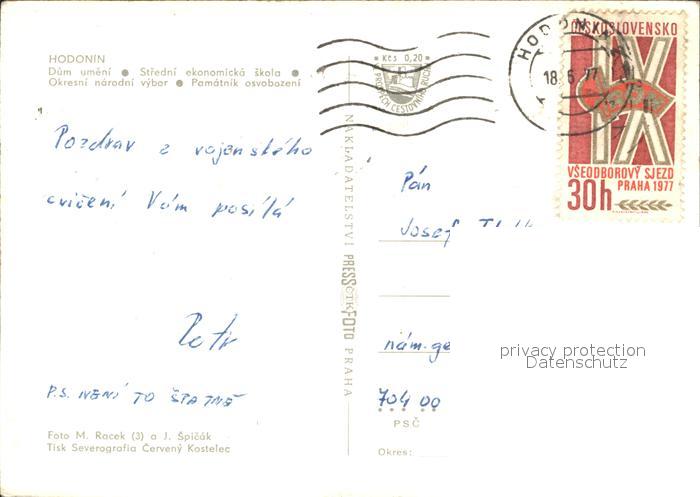 HODONÍN
Dům umění ● Střední ekonomická škola ●
Okresní národní výbor ● Památník osvobození
Pozdrav z vojenského
cvičení Vám posílá
Petr
P.S. NENÍ TO ŠPATNÉ
Foto M. Racek (3) a J. Špičák
Tisk Severografia Červený Kostelec
Kčs 0,20
NAKLADATELSTVÍ PRESSFOTO PRAHA
ČTK
HODONÍN
18.6.77
ČESKOSLOVENSKO
IX
VŠEODBOROVÝ SJEZD
PRAHA 1977
30h
Pán
Josef
nám. ge
privacy protection
Datenschutz
704 00
PSČ
Okres: